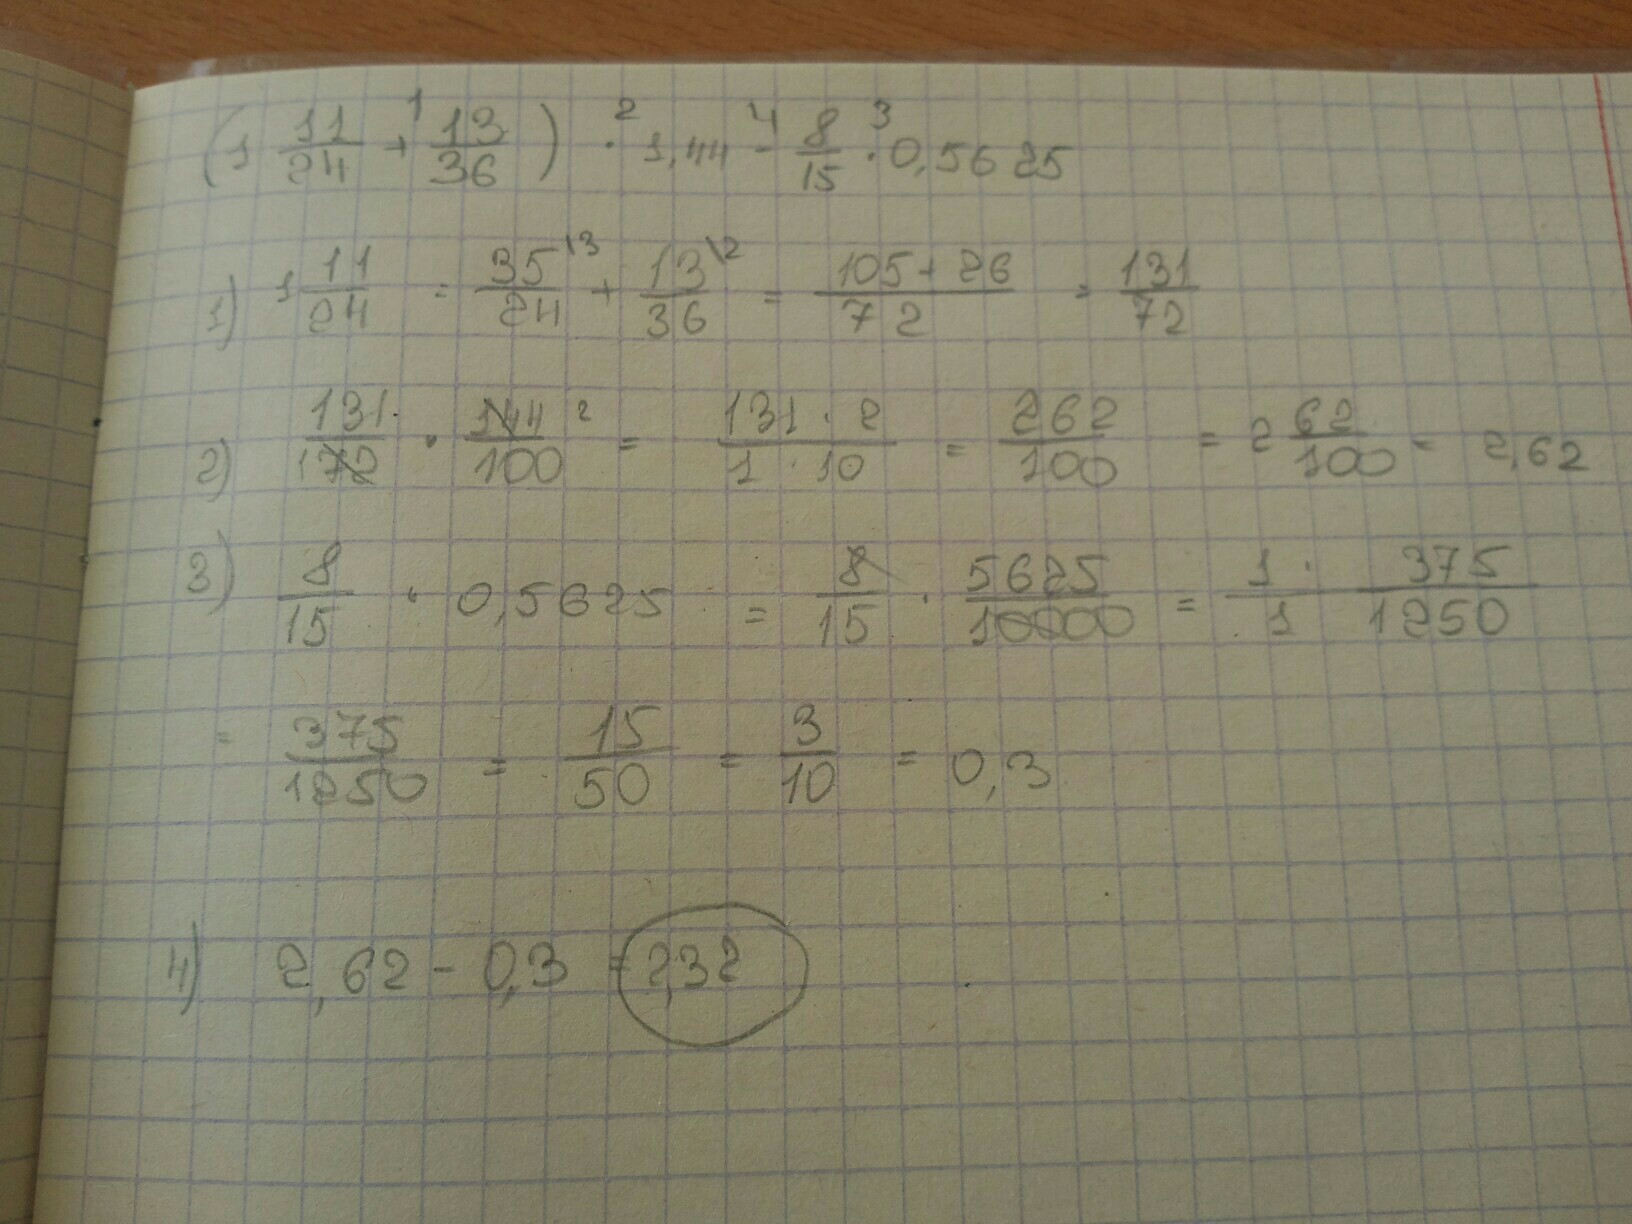 (1 11/24 +¹ 13/36) ·² 1,44 -⁴ 8/15 ·³ 0,5625
1) 1 11/24 = 35\3/24 + 13\2/36 = 105+26/72 = 131/72
2) 131/172 · 144 2/100 = 131·2/1·10 = 262/100 = 2 62/100 = 2,62
3) 8/15 · 0,5625 = 8/15 · 5625/10000 = 1·375/1 1250
= 375/1250 = 15/50 = 3/10 = 0,3
4) 2,62 - 0,3 = 2,32